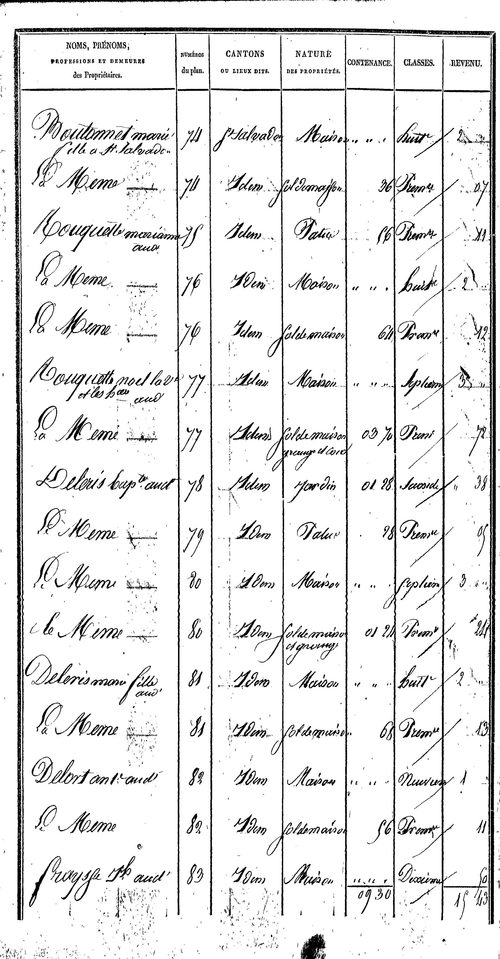 NOMS, PRÉNOMS, PROFESSIONS ET DEMEURES des Propriétaires. | NUMÉROS du plan. | CANTONS OU LIEUX DITS. | NATURE DES PROPRIÉTÉS. | CONTENANCE. | CLASSES. | REVENU.
Boutonnet marie 74 St Salvador Maison " " " huitr 2
fille a St Salvador
La Meme 74 Idem Sol de maison 36 Premre 07
Rouquette marianne 75 Idem Patus 56 Premre 11
aud
La Meme 76 Idem Maison " " " huitr 2
La Meme 76 Idem Sol de maison 64 Premre 12
Rouquette noel 77 Idem Maison " " " Septiem 3
et les aud
La Meme 77 Idem Sol de maison 03 70 Prem 72
grange et
Deleris aud 78 Idem Jardin 01 28 Seconde " 38
Le Meme 79 Idem Patus 28 Premre 05
Le Meme 80 Idem Maison " " " Septiem 3
Le Meme 80 Idem Sol de maison 01 24 Premre 24
et grange
Deleris marie fille 81 Idem Maison " " " huitr 2
aud
La Meme 81 Idem Sol de maison 68 Premre 13
Delort ant. aud 82 Idem Maison " " " Neuviem 1
Le Meme 82 Idem Sol de maison 56 Premre 11
aud 83 Idem Maison " " " Dixieme 50
09 30 15 43